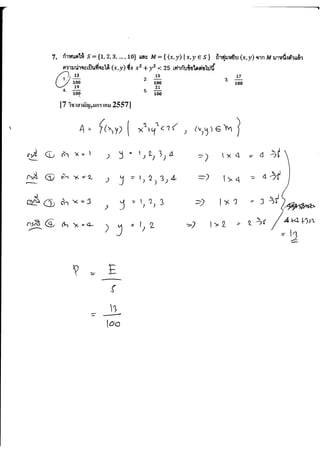 7. กำหนดให้ S = {1, 2, 3, ... , 10} และ M = { (x, y) | x, y ∈ S } ถ้าสุ่มหยิบ (x, y) จาก M มาหนึ่งตัวแล้ว
ความน่าจะเป็นที่จะได้ (x, y) ซึ่ง x² + y² < 25 เท่ากับข้อใดต่อไปนี้
1. 13/100 2. 15/100 3. 17/100
4. 19/100 5. 21/100
[7 วิชาสามัญ, มกราคม 2557]
A = {(x,y) | x²+y² < 25 , (x,y) ∈ M }
กรณี ① ถ้า x = 1 , y = 1, 2, 3, 4 => 1 x 4 = 4 วิธี
กรณี ② ถ้า x = 2 , y = 1, 2, 3, 4 => 1 x 4 = 4 วิธี
กรณี ③ ถ้า x = 3 , y = 1, 2, 3 => 1 x 3 = 3 วิธี
กรณี ④ ถ้า x = 4 , y = 1, 2 => 1 x 2 = 2 วิธี
4+4+3+2
= 13
P = E/S
= 13/100